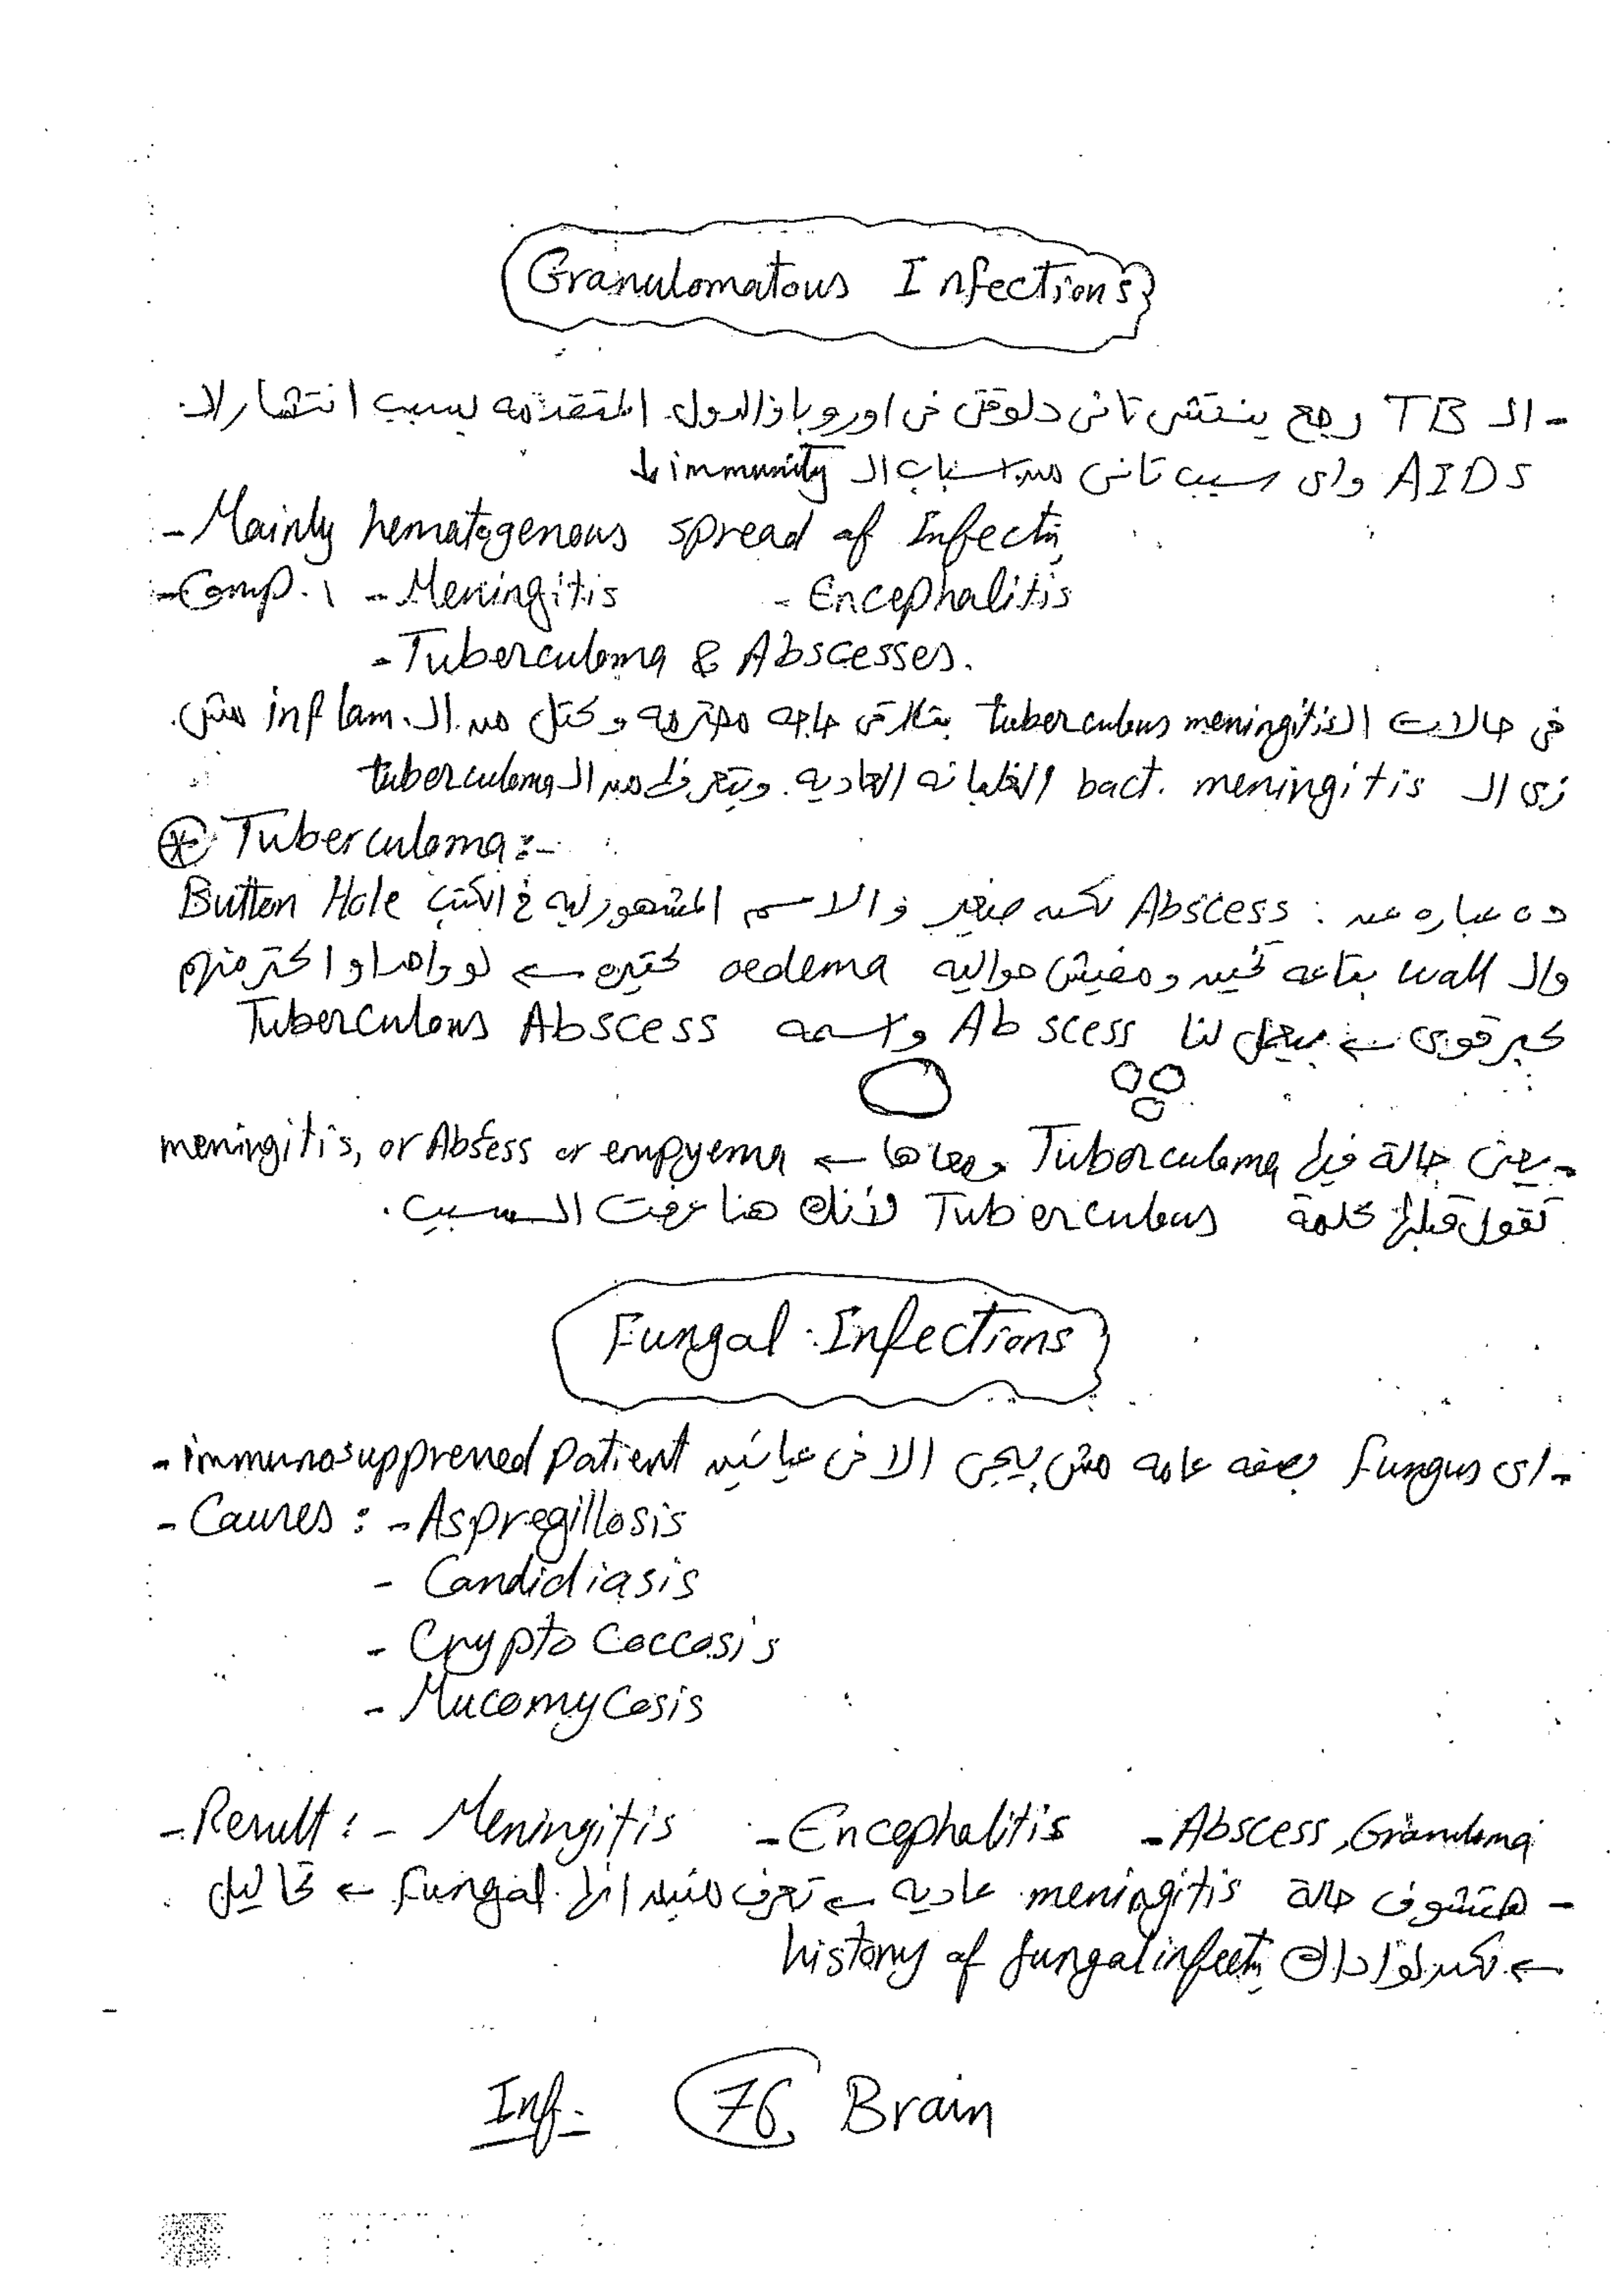 Granulomatous Infections
- الـ TB رجع ينتشر تانى دلوقتى فى اوروبا والدول المتقدمه بسبب انتشار الـ
AIDS واى سبب تانى من اسباب الـ immunity ↓
- Mainly hematogenous spread of Infectn
- Comp. : - Meningitis - Encephalitis
- Tuberculoma & Abscesses.
فى حالات الـ tuberculous meningitis بتلاقى حاجه محترمه وكتل من الـ inflam. مش
زى الـ bact. meningitis الغلبانه العاديه.
⊛ Tuberculoma :-
ده عباره عن : Abscess لكن صغير والاسم المشهور ليه فى الكتب Button Hole
والـ wall بتاعه تخين ومفيش حواليه oedema كتيره ← لو واحد او اكتر منهم
كبر قوى ← بيعمل لنا Abscess واسمه Tuberculous Abscess
- يعنى حالة فيها Tuberculoma ومعاها ← meningitis, or Absess or empyema
تقول قبلها كلمة Tuberculous لأنك هنا عرفت السبب.
Fungal Infections
- اى Fungus بصفه عامه مش بيجى الا فى عيانين immunosuppressed patient -
- Causes : - Aspregillosis
- Candidiasis
- Crypto Coccosis
- Mucomycosis
- Result : - Meningitis - Encephalitis - Abscess, Granuloma
- هتشوف حالة meningitis عاديه ← تعرف منين انها fungal ← تحاليل
← لكن لو اداك history of fungal infectn
Inf. 76 Brain